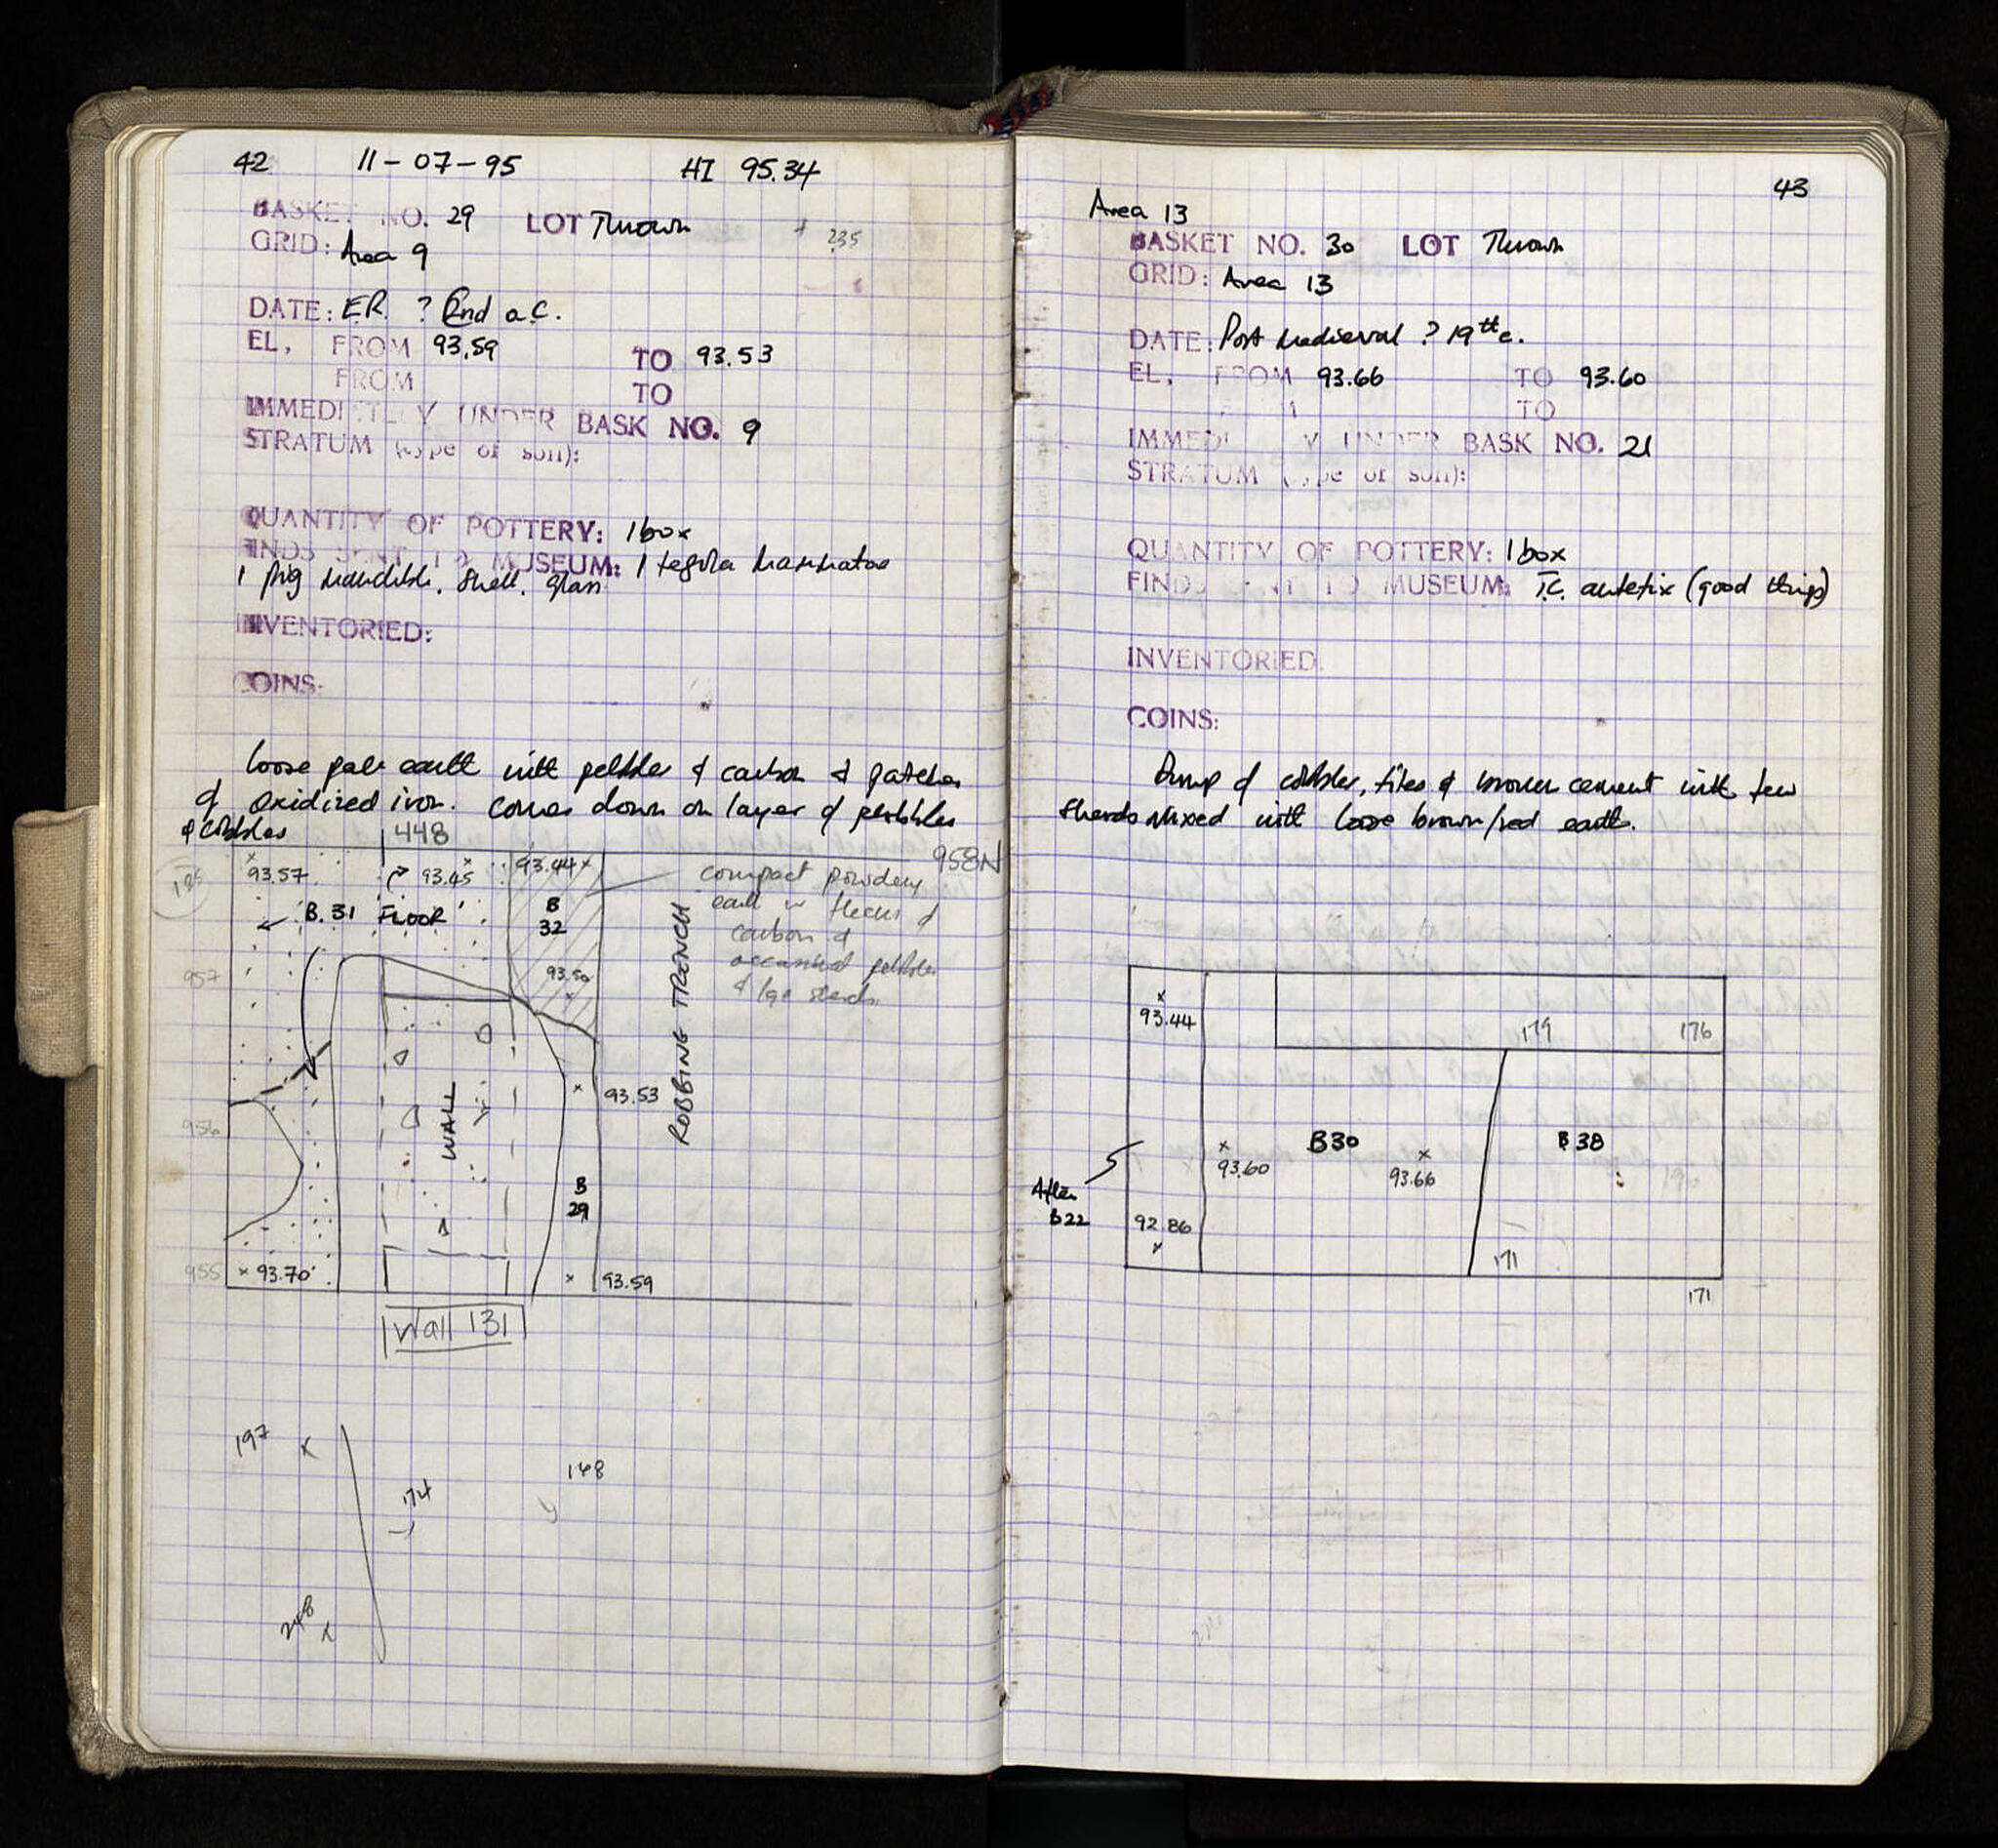 42 11-07-95 HI 95.34
BASKET NO. 29 LOT Thrown
+ 235
GRID: Area 9
DATE: E.R. ? 2nd a.C.
EL, FROM 93.59 TO 93.53
FROM TO
IMMEDIATELY UNDER BASK NO. 9
STRATUM (type of soil):
QUANTITY OF POTTERY: 1 box
FINDS SENT TO MUSEUM: 1 tegula hammatae
1 pig mandible, shell, glass
INVENTORIED:
COINS:
Loose pale earth with pebbles & carbon & patches
of oxidized iron. comes down on layer of pebbles
& cobbles
448
958N
93.57 93.45 93.44
B. 31 FLOOR
B
32
compact powdery
earth w flecks of
carbon &
occasional pebbles
& lge sherds
93.50
957
ROBBING TRENCH
93.53
956
WALL
B
29
955 93.70 93.59
Wall 131
197
174
148
248
43
Area 13
BASKET NO. 30 LOT Thrown
GRID: Area 13
DATE: Post Medieval ? 19th c.
EL, FROM 93.66 TO 93.60
TO
IMMEDIATELY UNDER BASK NO. 21
STRATUM (type of soil):
QUANTITY OF POTTERY: 1 box
FINDS SENT TO MUSEUM: T.C. antefix (good thing)
INVENTORIED
COINS:
Dump of cobbles, tiles & brown cement with few
sherds mixed with loose brown/red earth.
93.44
179 176
B30 B38
93.60 93.66
After
B22
92.86
171
171